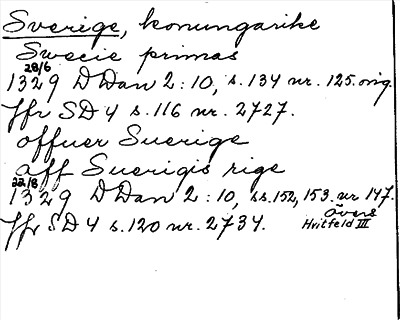 Sverige, konungarike
Swecie primas
28/6
1329 D Dan 2:10, s. 134 nr. 125. orig.
Jfr SD 4 s. 116 nr. 2727.
offuer Suerige
aff Suerigis rige
22/8
1329 D Dan 2:10, ss. 152, 153. nr 147.
Övers
Hvitfeld III
Jfr SD 4 s. 120 nr. 2734.